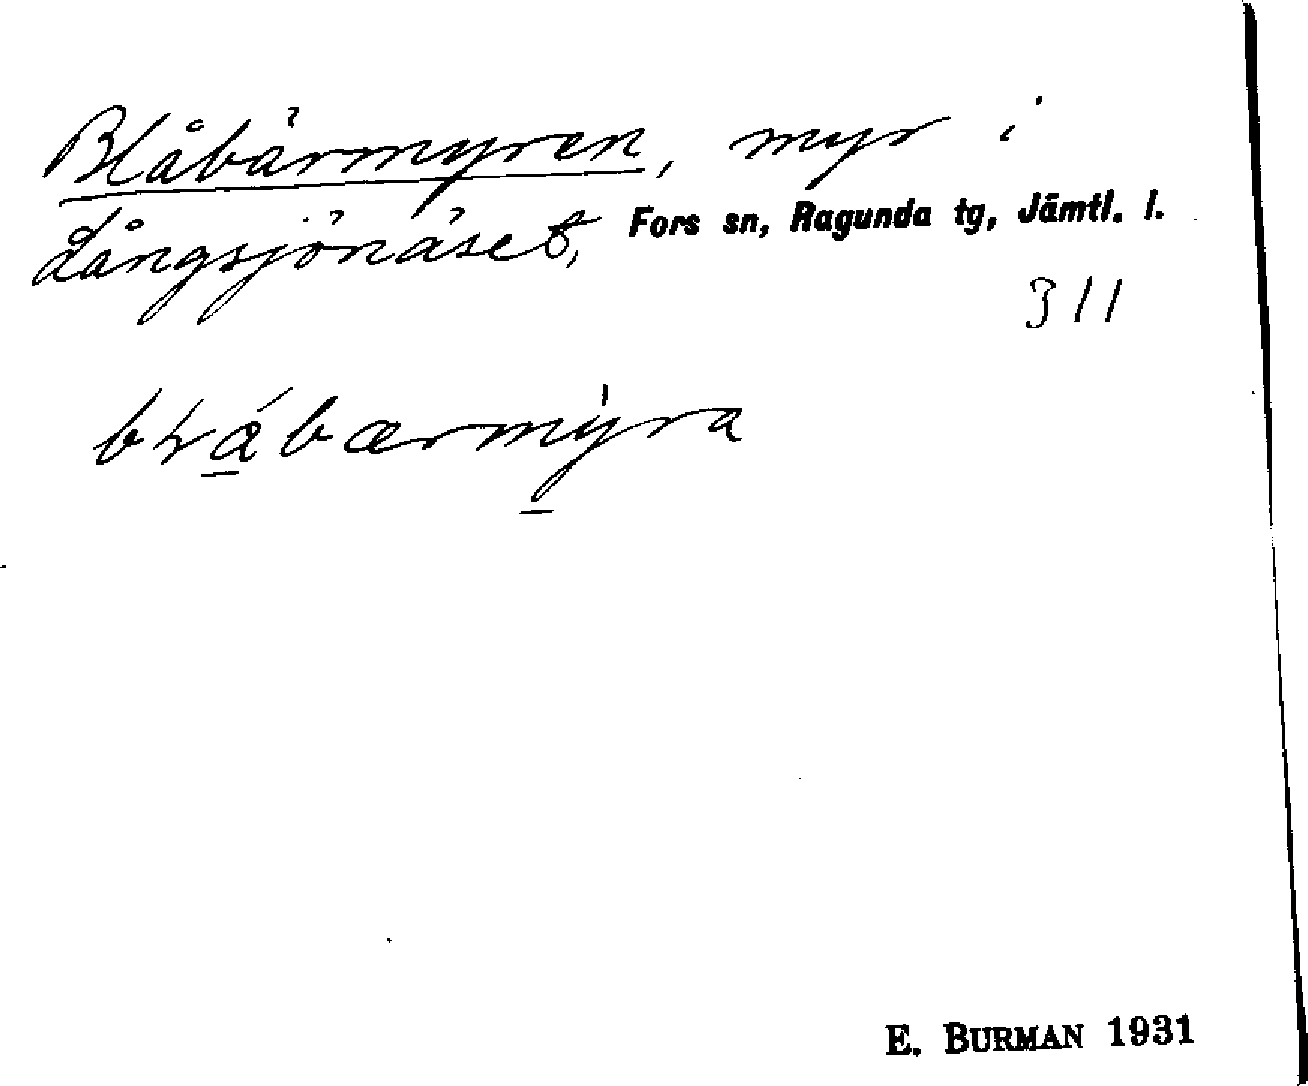 Blåbärmyren, myr i
Långsjönäset, Fors sn, Ragunda tg, Jämtl. l.
311
E. BURMAN 1931